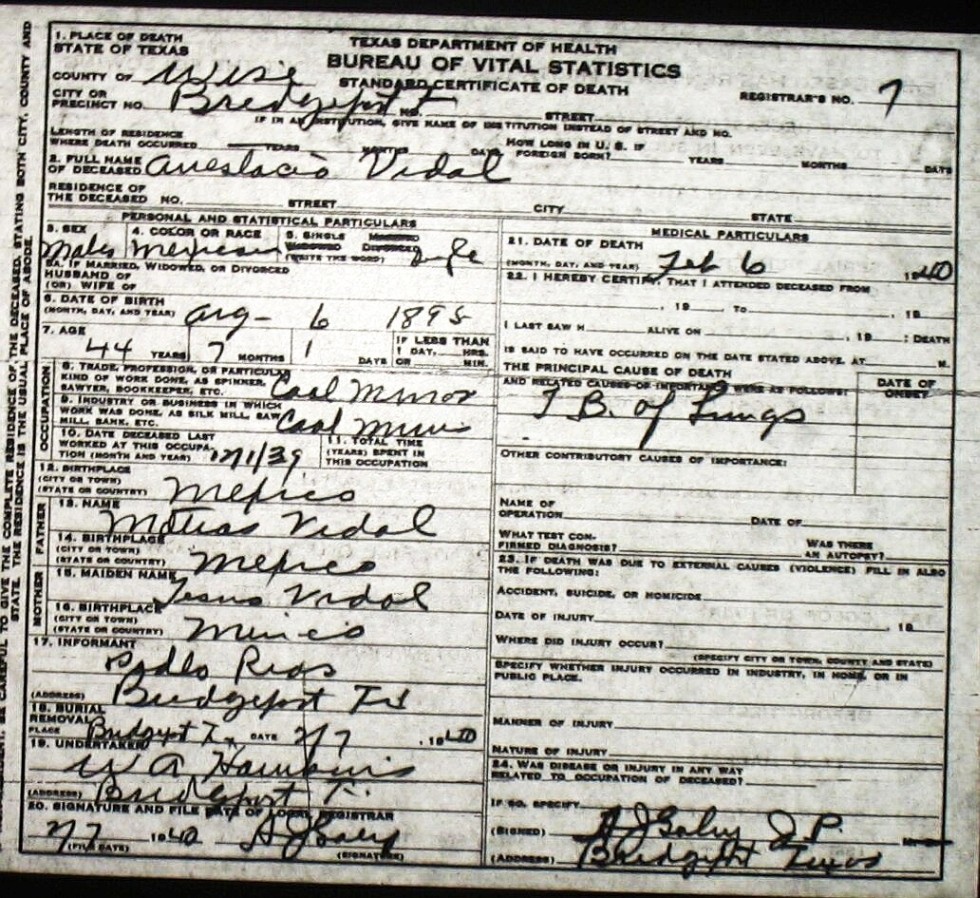 1. PLACE OF DEATH
STATE OF TEXAS
TEXAS DEPARTMENT OF HEALTH
BUREAU OF VITAL STATISTICS
STANDARD CERTIFICATE OF DEATH
COUNTY OF Wise
REGISTRAR'S NO. 7
CITY OR
PRECINCT NO. Bridgeport T NO. STREET
IF IN AN INSTITUTION, GIVE NAME OF INSTITUTION INSTEAD OF STREET AND NO.
LENGTH OF RESIDENCE
WHERE DEATH OCCURRED YEARS MONTHS DAYS
HOW LONG IN U. S. IF
FOREIGN BORN? YEARS MONTHS DAYS
2. FULL NAME
OF DECEASED Anestacio Vidal
RESIDENCE OF
THE DECEASED NO. STREET CITY STATE
PERSONAL AND STATISTICAL PARTICULARS
3. SEX
Male
4. COLOR OR RACE
Mexican
5. SINGLE MARRIED
WIDOWED DIVORCED
(WRITE THE WORD)
5A. IF MARRIED, WIDOWED, OR DIVORCED
HUSBAND OF
(OR) WIFE OF
6. DATE OF BIRTH
(MONTH, DAY, AND YEAR) 6 1895
7. AGE
44 YEARS 7 MONTHS 1 DAYS
IF LESS THAN
1 DAY, HRS.
OR MIN.
OCCUPATION
8. TRADE, PROFESSION, OR PARTICULAR
KIND OF WORK DONE, AS SPINNER,
SAWYER, BOOKKEEPER, ETC. Coal Minor
9. INDUSTRY OR BUSINESS IN WHICH
WORK WAS DONE, AS SILK MILL, SAW
MILL, BANK, ETC. Coal Mines
10. DATE DECEASED LAST
WORKED AT THIS OCCUPA-
TION (MONTH AND YEAR) 12/1/39
11. TOTAL TIME
(YEARS) SPENT IN
THIS OCCUPATION
12. BIRTHPLACE
(CITY OR TOWN)
(STATE OR COUNTRY) Mexico
FATHER
13. NAME
Matias Vidal
14. BIRTHPLACE
(CITY OR TOWN)
(STATE OR COUNTRY) Mexico
MOTHER
15. MAIDEN NAME
Jesus Vidal
16. BIRTHPLACE
(CITY OR TOWN)
(STATE OR COUNTRY) Mexico
17. INFORMANT
Rios
(ADDRESS) Bridgeport
18. BURIAL
REMOVAL
PLACE Bridgept Tx DATE 2/7, 1940
19. UNDERTAKER
W A
(ADDRESS) Bridgeport T.
20. SIGNATURE AND FILE DATE OF LOCAL REGISTRAR
2/7 1940 A J Galey
(FILE DATE) (SIGNATURE)
MEDICAL PARTICULARS
21. DATE OF DEATH
(MONTH, DAY, AND YEAR) Feb 6 1940
22. I HEREBY CERTIFY, THAT I ATTENDED DECEASED FROM
, 19 TO , 19
I LAST SAW H ALIVE ON , 19 ; DEATH
IS SAID TO HAVE OCCURRED ON THE DATE STATED ABOVE, AT M.
THE PRINCIPAL CAUSE OF DEATH
AND RELATED CAUSES OF IMPORTANCE WERE AS FOLLOWS:
DATE OF
ONSET
T B. of Lungs
OTHER CONTRIBUTORY CAUSES OF IMPORTANCE:
NAME OF
OPERATION DATE OF
WHAT TEST CON-
FIRMED DIAGNOSIS?
WAS THERE
AN AUTOPSY?
23. IF DEATH WAS DUE TO EXTERNAL CAUSES (VIOLENCE) FILL IN ALSO
THE FOLLOWING:
ACCIDENT, SUICIDE, OR HOMICIDE
DATE OF INJURY , 19
WHERE DID INJURY OCCUR?
(SPECIFY CITY OR TOWN, COUNTY AND STATE)
SPECIFY WHETHER INJURY OCCURRED IN INDUSTRY, IN HOME, OR IN
PUBLIC PLACE.
MANNER OF INJURY
NATURE OF INJURY
24. WAS DISEASE OR INJURY IN ANY WAY
RELATED TO OCCUPATION OF DECEASED?
IF SO, SPECIFY
(SIGNED) A J Galey J. P.
(ADDRESS) Bridgept Texas
BE CAREFUL TO GIVE THE COMPLETE RESIDENCE OF THE DECEASED, STATING BOTH CITY, COUNTY AND
STATE. THE RESIDENCE IS THE USUAL PLACE OF ABODE.